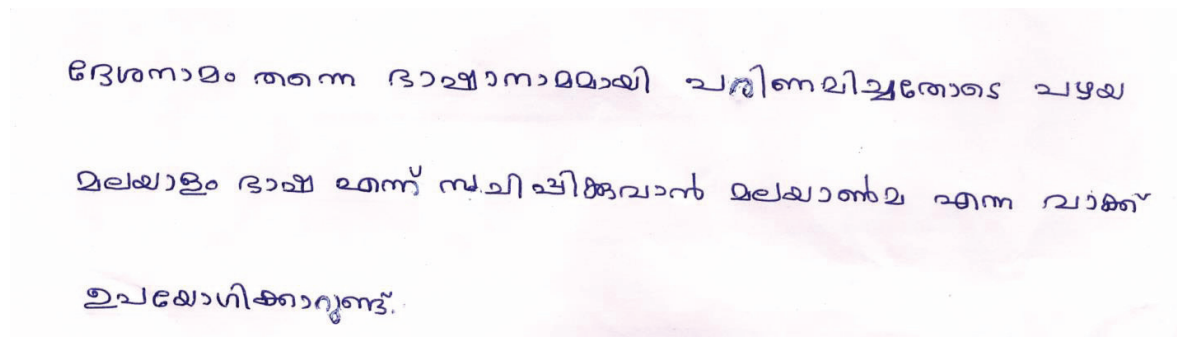 ദേശനാമം തന്നെ ഭാഷാനാമമായി പരിണമിച്ചതോടെ പഴയ
മലയാളം ഭാഷ എന്ന് സൂചിപ്പിക്കുവാൻ മലയാണ്മ എന്ന വാക്ക്
ഉപയോഗിക്കാറുണ്ട്.